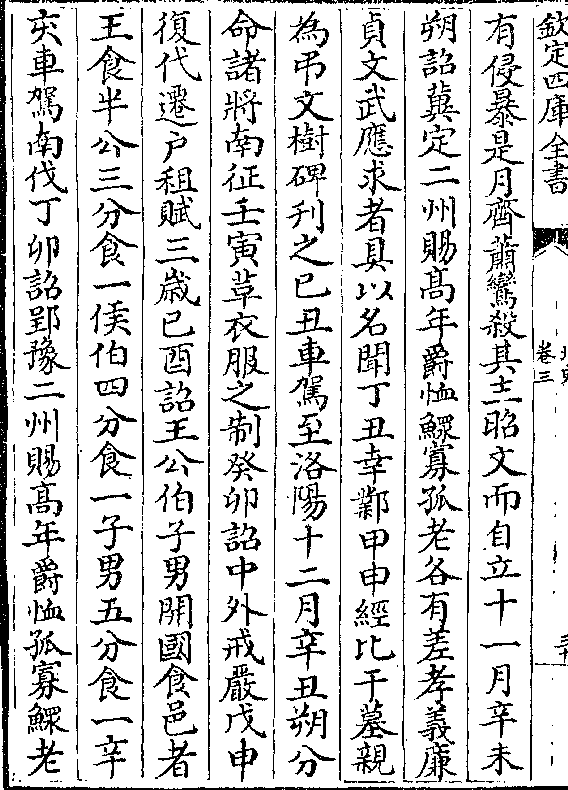 欽定四庫全書
卷三
有侵暴是月齊蕭鸞殺其主昭文而自立十一月辛未
朔詔冀定二州賜髙年爵恤鰥寡孤老各有差孝義廉
貞文武應求者具以名聞丁丑幸鄴甲申經比干墓親
為弔文樹碑刋之已丑車駕至洛陽十二月辛丑朔分
命諸將南征壬寅革衣服之制癸卯詔中外戒嚴戊申
復代遷户租賦三歳已酉詔王公伯子男開國食邑者
王食半公三分食一侯伯四分食一子男五分食一辛
亥車駕南伐丁卯詔郢豫二州賜髙年爵恤孤寡鰥老